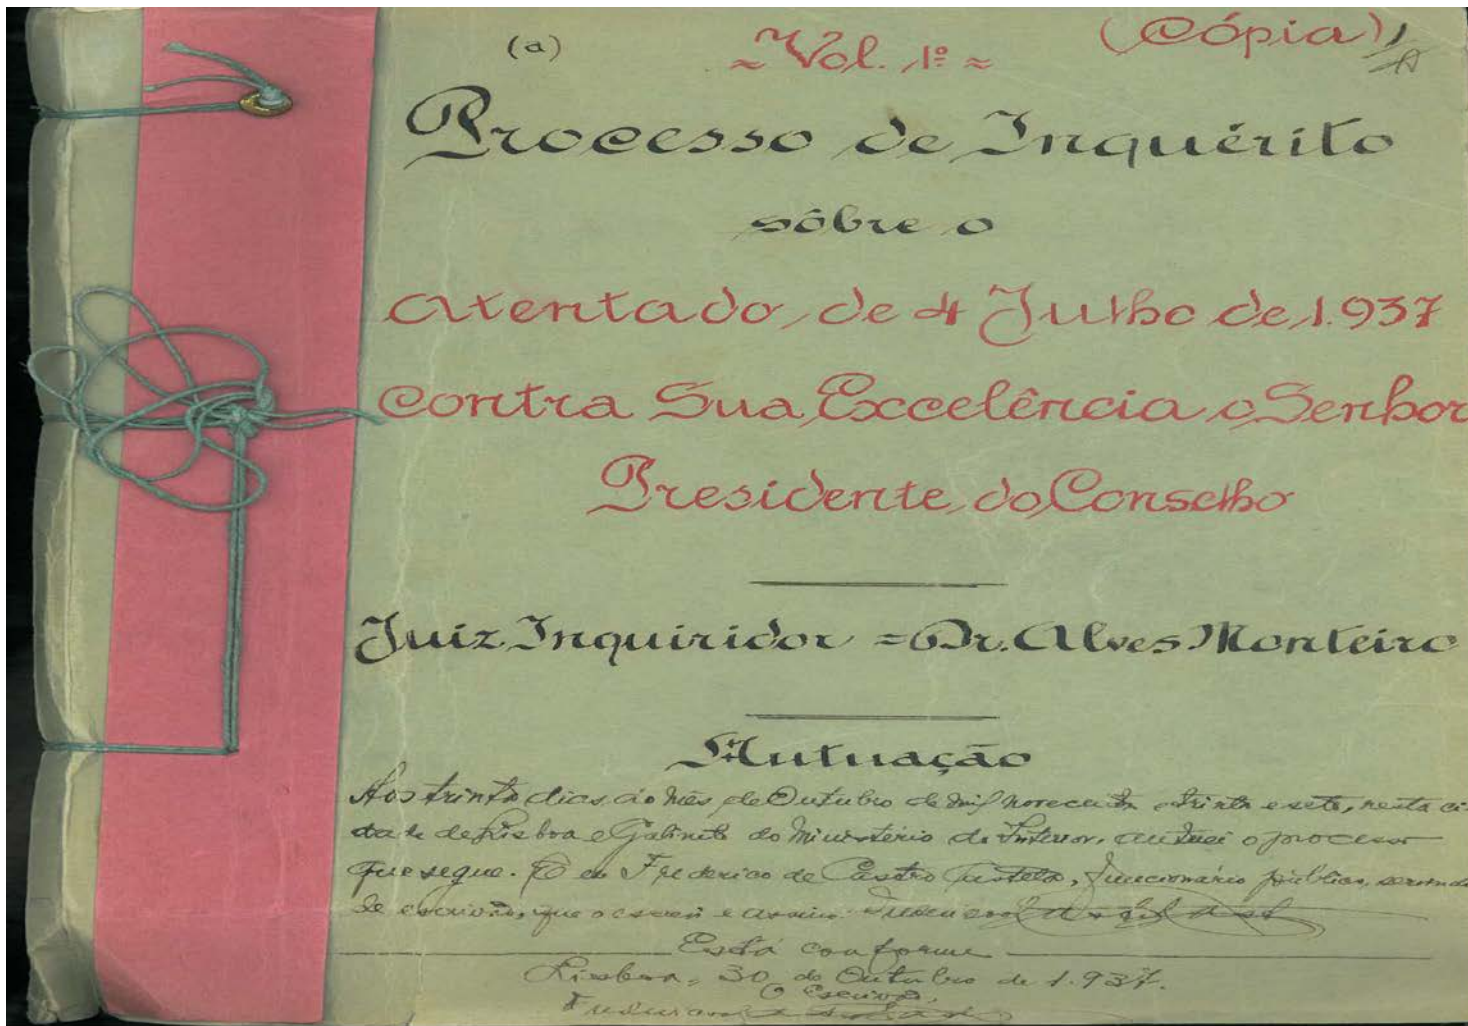 (a) ~ Vol. 1º ~ (Cópia) 1
Processo de Inquérito
sôbre o
Atentado de 4 Julho de 1.937
contra Sua Excelência o Senhor
Presidente do Conselho
Juiz Inquiridor = Dr. Alves Monteiro
Autuação
Aos trinta dias do mês de Outubro de mil novecentos e trinta e sete, nesta ci-
dade de Lisboa e Gabinete do Ministério do Interior, autuei o processo
que segue. E eu Frederico de Castro, funcionário público, servindo
de escrivão, que o escrevi e assino.
Está conforme
Lisboa, 30 de Outubro de 1.937.
O Escrivão,